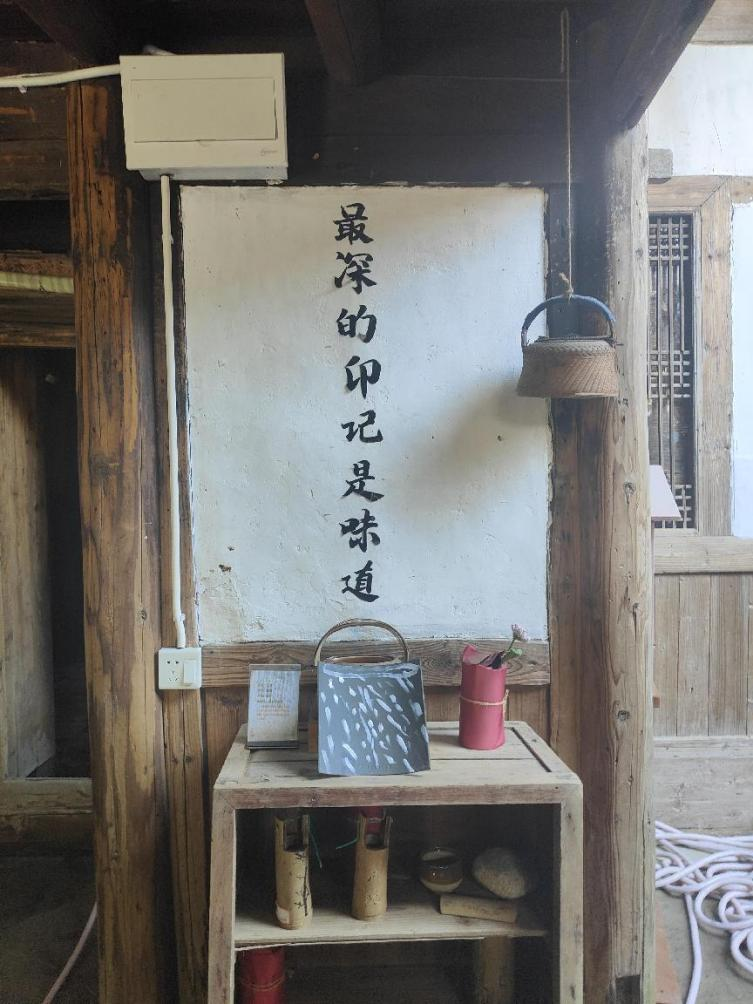 最深的印记是味道